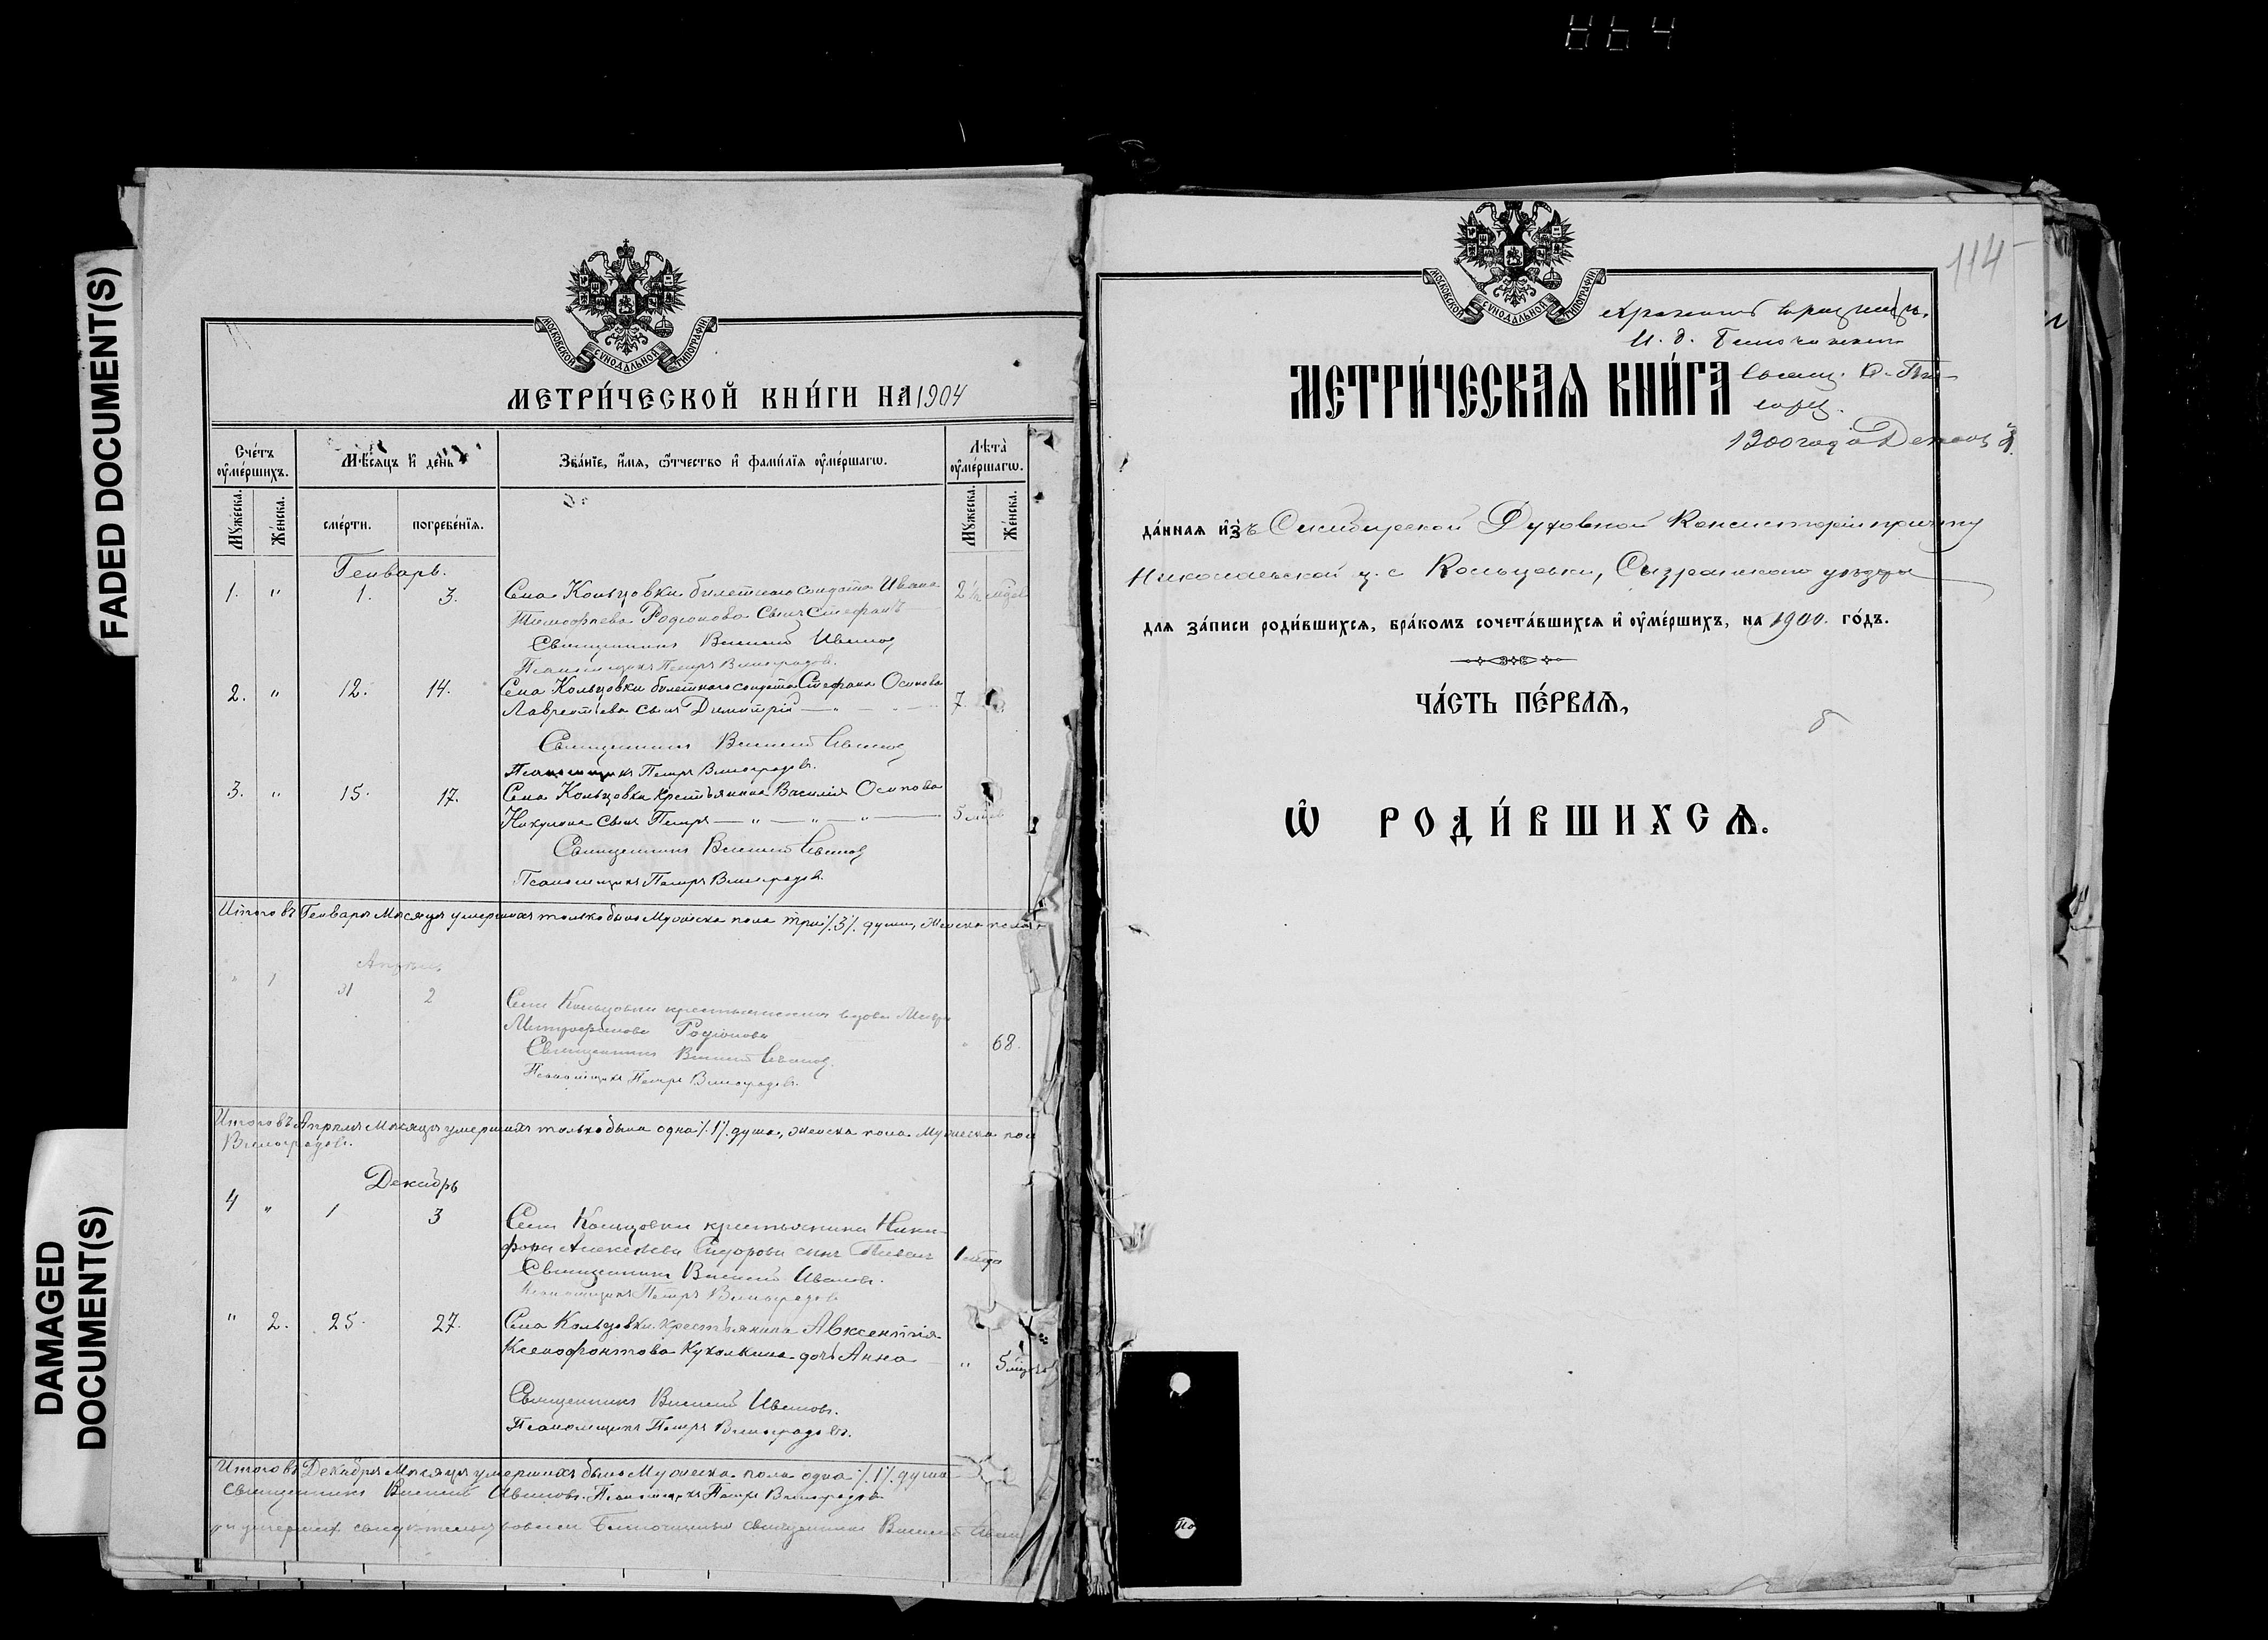 864
FADED DOCUMENT(S)
DAMAGED
DOCUMENT(S)
МОСКОВСКОЙ СѴНОДАЛЬНОЙ ТИПОГРАФІИ
МЕТРИ́ЧЕСКОЙ КНИ́ГИ НА 1904
Сче́тъ ᲂу҆ме́ршихъ.
Мѣ́сяцъ и҆ де́нь
Зва́нїе, и҆́мя, ѻ҆́тчество и҆ фами́лїя ᲂу҆ме́ршагѡ.
Лѣ́та ᲂу҆ме́ршагѡ.
Мꙋ́жеска.
Же́нска.
сме́рти.
погребе́нїя.
Мꙋ́жеска.
Же́нска.
Генварь.
1. " 1. 3. Села Кольцовки билетнаго солдата Ивана 2½
Тимофѣева Родіонова сынъ Стефанъ
Священникъ Василій Ивановъ
Псаломщикъ Петръ Виноградовъ.
2. " 12. 14. Села Кольцовки билетнаго солдата Стефана Осипова
Лаврентіева сынъ Димитрій — " — 7.
Священникъ Василій Ивановъ
Псаломщикъ Петръ Виноградовъ.
3. " 15. 17. Села Кольцовки крестьянина Василія Осипова
Никулина сынъ Петръ — " — " — " — 5
Священникъ Василій Ивановъ
Псаломщикъ Петръ Виноградовъ.
Итого въ Генварѣ Мѣсяцѣ умершихъ только было Мужеска пола три ⁒3⁒ души, Женска пола
Апрѣль
" 1 31 2
Села Кольцовки крестьянская вдова Мавра
Митрофанова Родіонова " 68.
Священникъ Василій Ивановъ.
Псаломщикъ Петръ Виноградовъ.
Итого въ Апрѣлѣ Мѣсяцѣ умершихъ только была одна ⁒1⁒ душа, женска пола. Мужеска пол
Виноградовъ.
Декабрь
4 " 1 3
Села Кольцовки крестьянина Ники-
фора Алексѣева Сидорова сынъ 1 года
Священникъ Василій Ивановъ.
Псаломщикъ Петръ Виноградовъ
" 2. 25. 27. Села Кольцовки крестьянина Авксентія
Ксенофонтова Кухолкина дочь Анна " 5
Священникъ Василій Ивановъ.
Псаломщикъ Петръ Виноградовъ.
Итого въ Декабрѣ Мѣсяцѣ умершихъ было Мужеска пола одна ⁒1⁒ душа
Священникъ Василій Ивановъ. Псаломщикъ Петръ Виноградовъ
умершихъ свидѣтельствовалъ Благочинный священникъ Василій
114
МОСКОВСКОЙ СѴНОДАЛЬНОЙ ТИПОГРАФІИ
И. д. Благочиннаго
Свящ.
1900 года
МЕТРИ́ЧЕСКАѦ КНИ́ГА
да́нная и҆зъ Симбирской Духовной Консисторіи причту
Николаевской ц. с. Кольцовки, Сызранскаго уѣзда
для за́писи роди́вшихся, бра́комъ сочета́вшихся и҆ ᲂу҆ме́ршихъ, на 1900. го́дъ.
ЧА́СТЬ ПЕ́РВАѦ,
Ѡ҆ РОДИ́ВШИХСѦ.